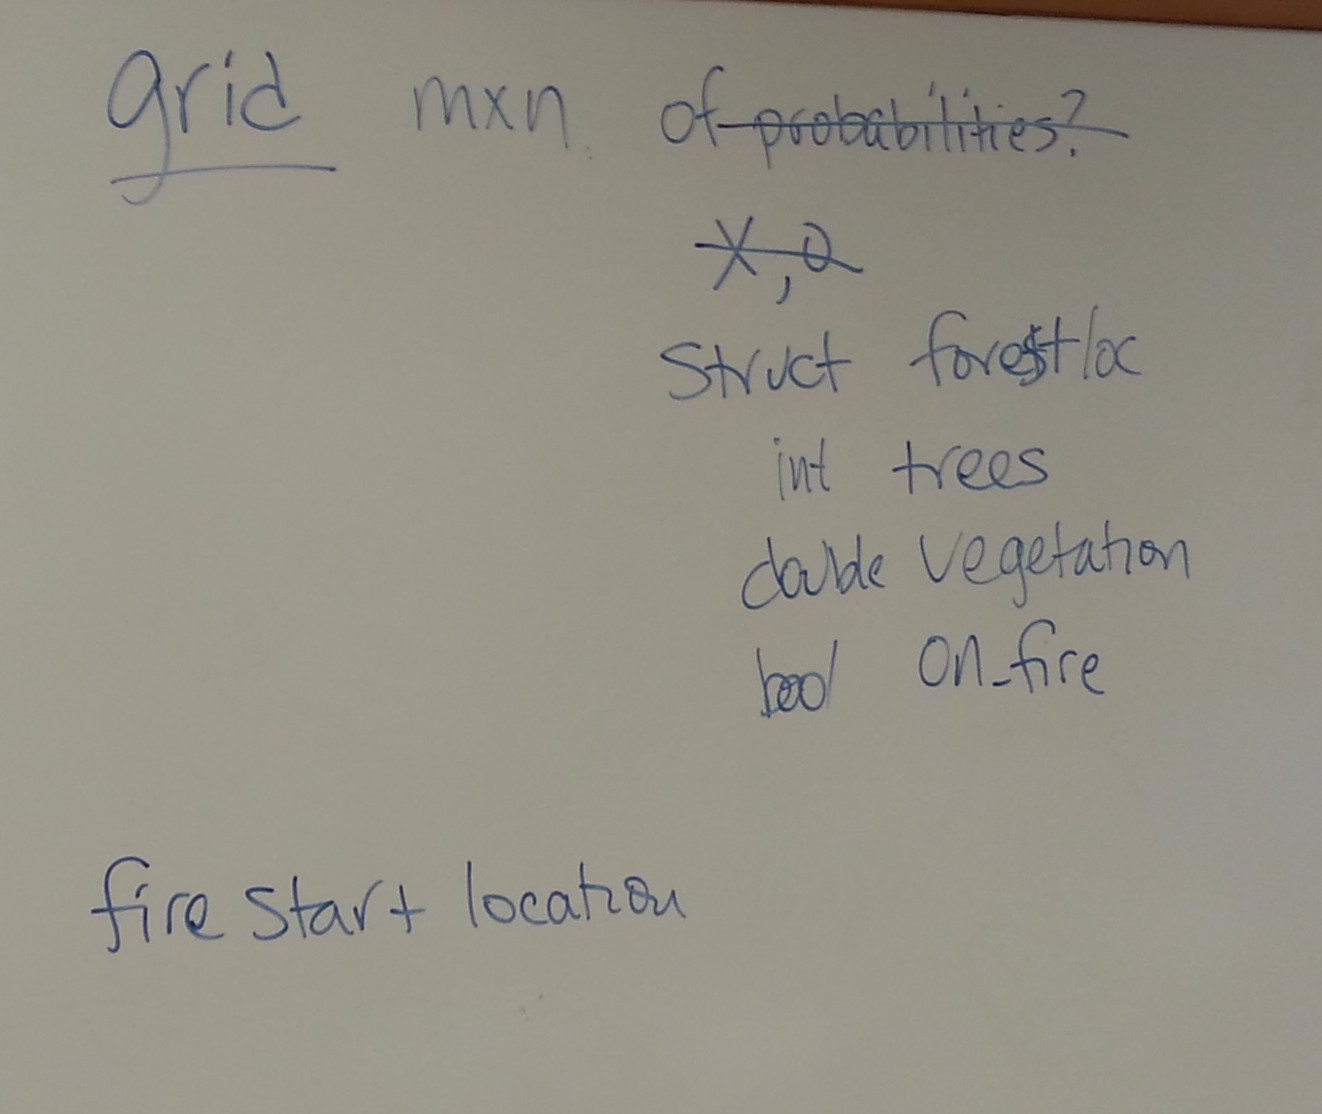 grid mxn of probabilities?
X,O
Struct forestloc
int trees
double vegetation
bool on_fire
fire start location